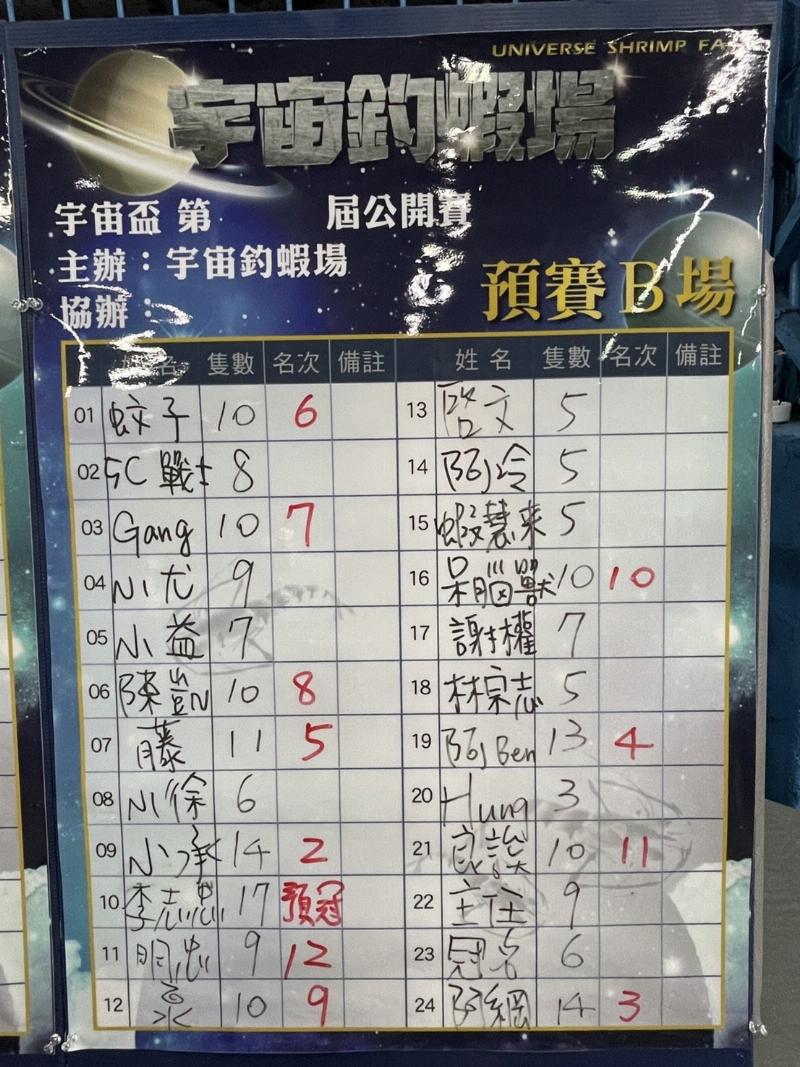 UNIVERSE SHRIMP FA
宇宙釣蝦場
宇宙盃 第 屆公開賽
主辦：宇宙釣蝦場
協辦：
預賽B場
姓名 隻數 名次 備註 姓名 隻數 名次 備註
01 蚊子 10 6 13 啓文 5
02 5C 戰士 8 14 阿冷 5
03 Gang 10 7 15 蝦慧来 5
04 小尤 9 16 呆腦獸 10 10
05 小益 7 17 謝權 7
06 陳凱 10 8 18 林宗志 5
07 藤 11 5 19 阿Ben 13 4
08 小徐 6 20 Hung 3
09 小承 14 2 21 10 11
10 李志忠 17 預冠 22 主任 9
11 明忠 9 12 23 冠名 6
12 10 9 24 阿網 14 3